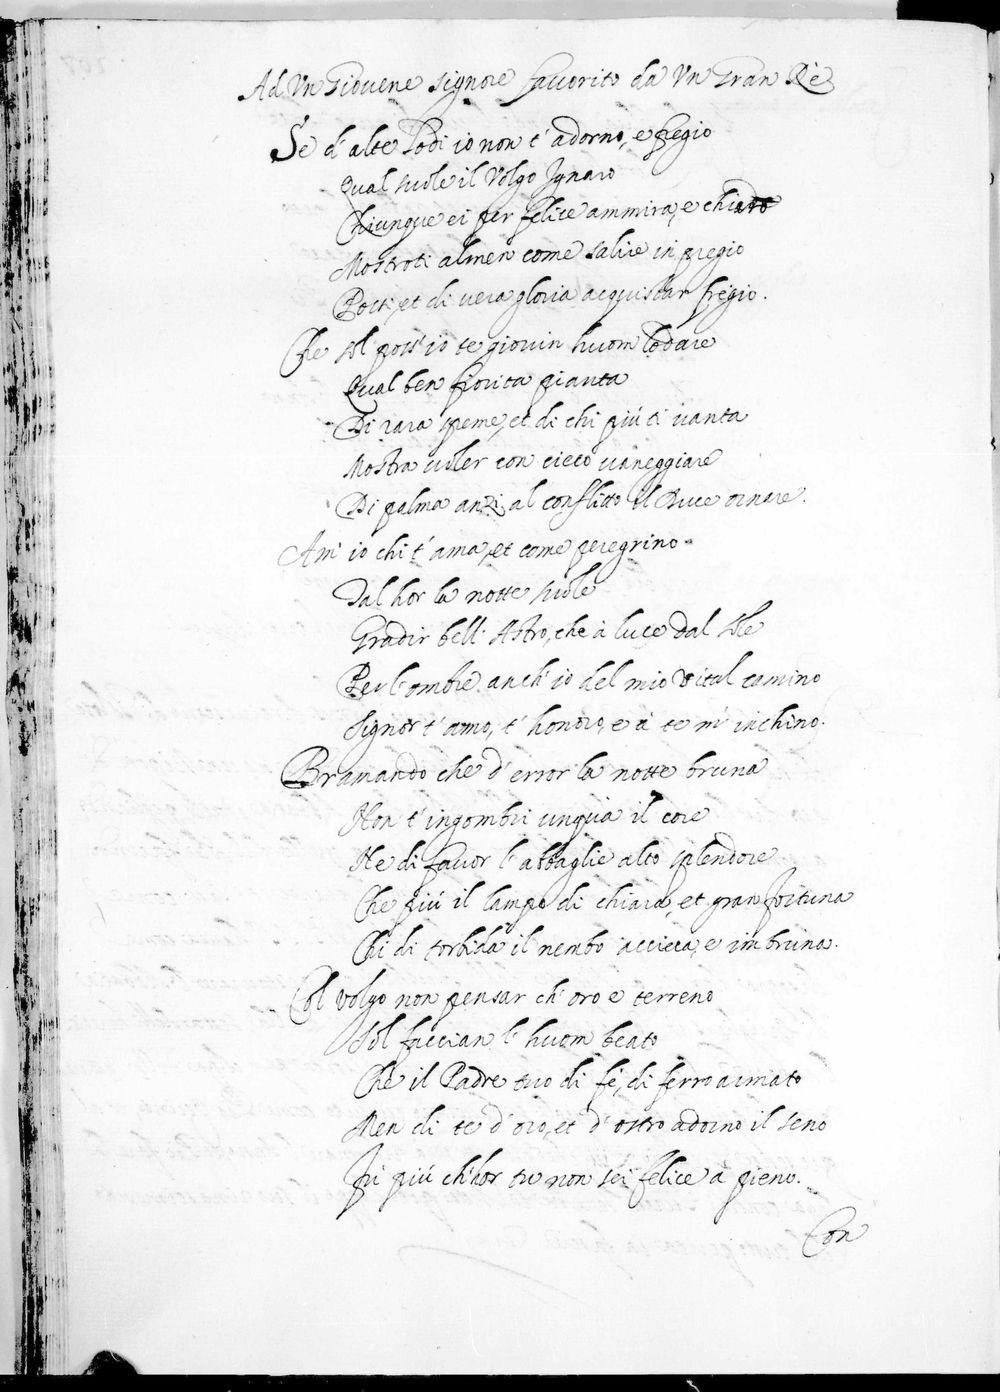 Ad Vn Giovene signore favorito da Vn Gran Rè
Se d'alte Lodi io non t'adorno, e fregio
Qual suole il Volgo Ignaro
Chiunque ei per felice ammira, e chiaro
Mostroti almen come salire in pregio
Potti, et di vera gloria acquistar fregio.
Che sol poss'io te giovin huom lodare
Qual ben fiorita pianta
Di rara speme, et di chi più ti vanta
Mostra voler con cieco vaneggiare
Di palma anzi al conflitto il Duce ornare.
Am' io chi t'ama, et come peregrino
Tal hor la notte suole
Gradir bell'Astro, che à luce dal Sole
Per l'ombre anch'io del mio Vital camino
Signor t'amo, t'honoro, e à te m'inchino.
Bramando che d'error la notte bruna
Non t'ingombri unqua il core
Ne di favor l'abbaglie alto splendore
Che più il lampo di chiara, et gran fortuna
Chi di torbida il nembo accieca, e imbruna.
Col volgo non pensar ch'oro e terreno
Sol faccian l'huom beato
Che il Padre tuo di fé, di ferro armato
Men di te d'oro, et d'ostro adorno il seno
Fu più ch'hor tu non sei felice à pieno.
Con